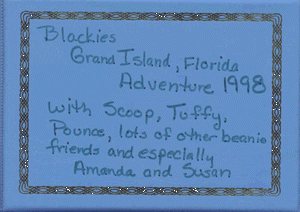 Blackies
Grand Island, Florida
Adventure 1998
with Scoop, Tuffy,
Pounce, lots of other beanie
friends and especially
Amanda and Susan